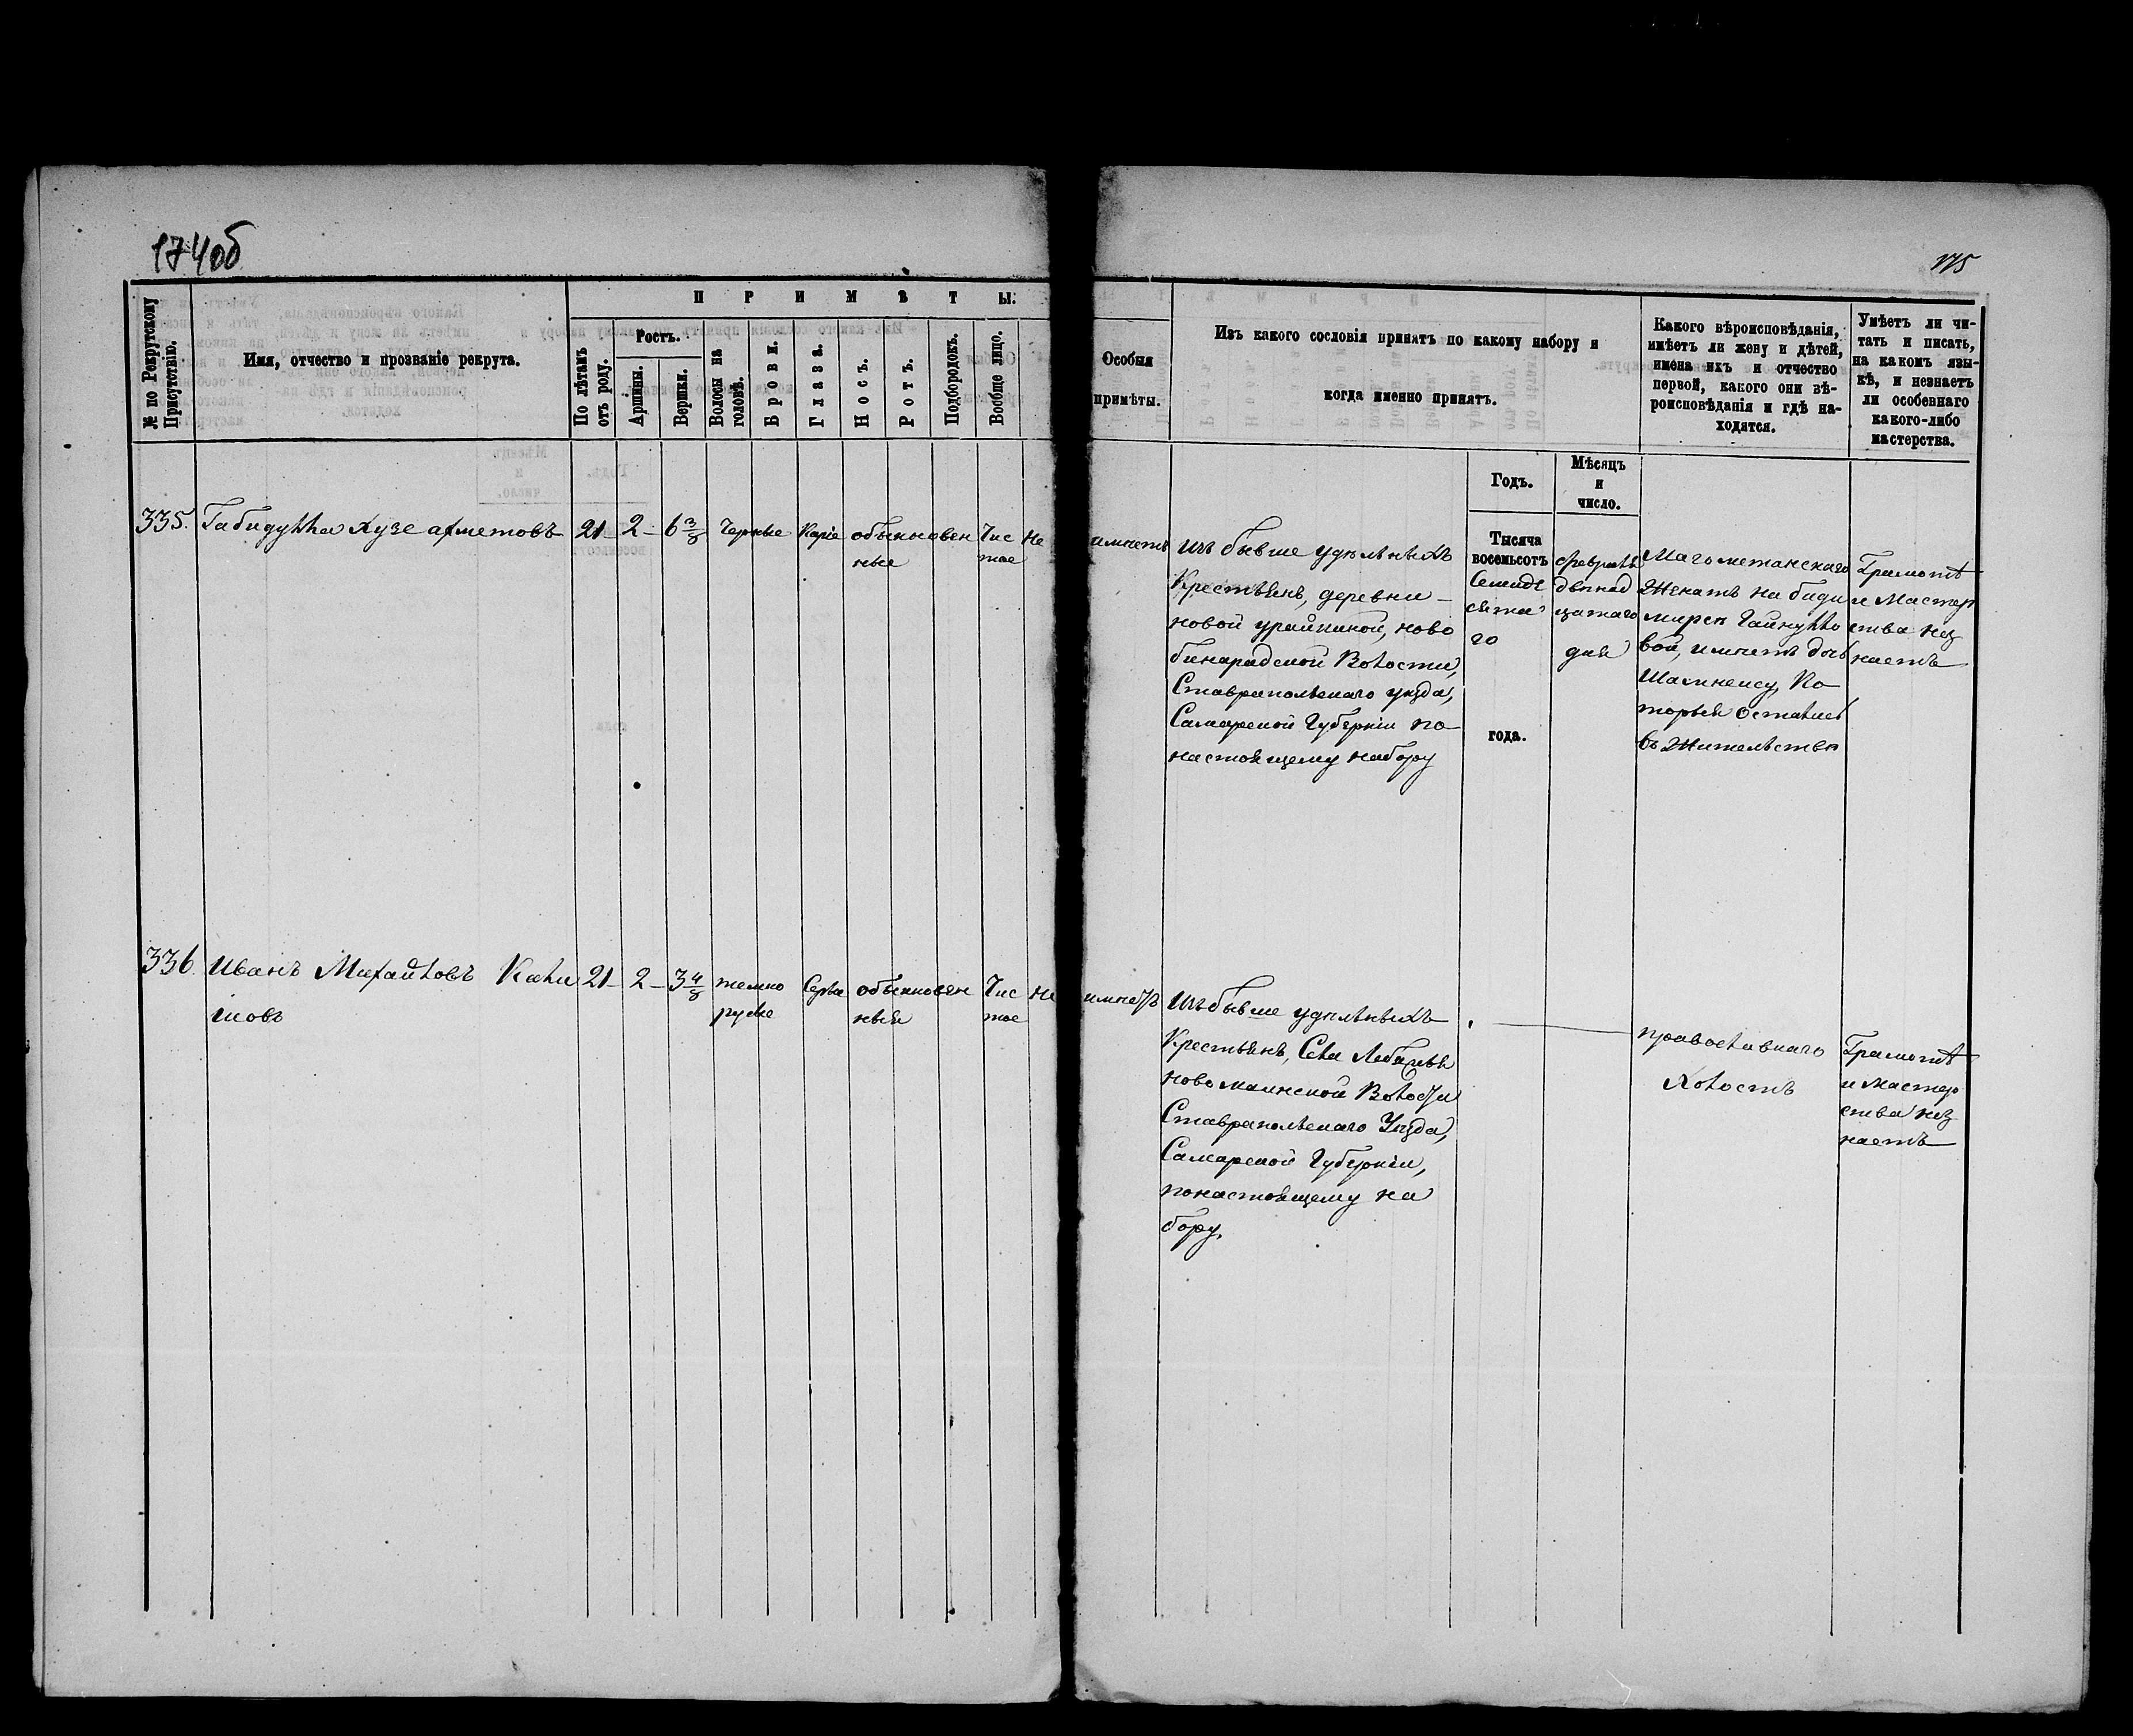 174об
175
№ по Рекрутскому Присутствію.
Имя, отчество и прозваніе рекрута.
ПРИМѢТЫ.
По лѣтамъ отъ роду.
Ростъ.
Аршины.
Вершки.
Волосы на головѣ.
Брови.
Глаза.
Носъ.
Ротъ.
Подбородокъ.
Вообще лицо.
Особыя
примѣты.
Изъ какого сословія принятъ по какому набору и
когда именно принятъ.
Годъ.
Мѣсяцъ
и
число.
Какого вѣроисповѣданія,
имѣетъ ли жену и дѣтей,
имена ихъ и отчество
первой, какого они вѣ-
роисповѣданія и гдѣ на-
ходятся.
Умѣетъ ли чи-
тать и писать,
на какомъ язы-
кѣ, и незнаетъ
ли особеннаго
какого-либо
мастерства.
335. Габидулла Хузеахметовъ 21 2 6 3/8 Черные Каріе обыкновен Чис не имѣетъ
ные тое
изъ бывше удѣльныхъ
Крестьянъ, деревни
новой урайкиной, ново
бинарадской Волости,
Ставропольскаго уѣзда,
Самарской Губерніи по
настоящему набору
Тысяча
восемьсотъ
Семиде
сята
го
года.
февраля
двѣнад
цатаго
дня
Магометанскаго
Женатъ на биди
мирѣ Гайнулло
вой, имѣетъ дочь
Шамкецу, Ко
торыя остались
въ Жительствѣ
Грамотѣ
и Мастер
ства нез
наетъ
336. Иванъ Михайловъ Кали 21 2 3 4/8 темно Серые обыкновен Чис не имѣетъ
шовъ русые ныя тое
Изъ бывше удѣльныхъ
Крестьянъ, Села Лебяжья
новомаинской Волости
Ставропольскаго Уѣзда,
Самарской Губерніи,
понастоящему на
бору.
православнаго
Холостъ
Грамотѣ
и Мастер
ства нез
наетъ